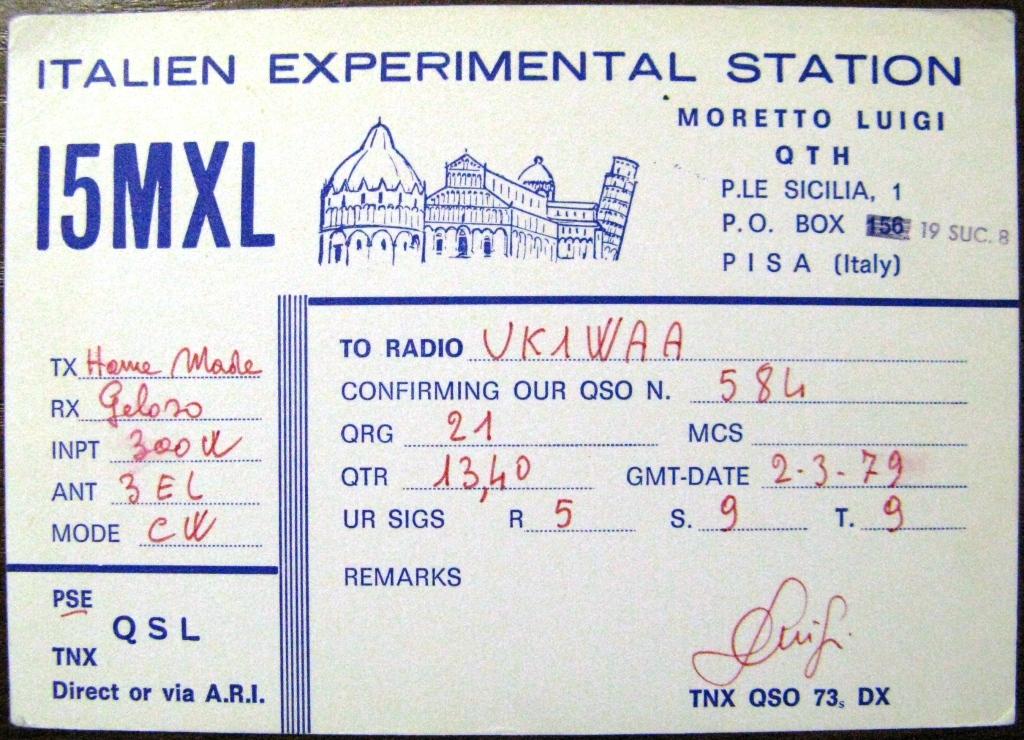 ITALIEN EXPERIMENTAL STATION
I5MXL
MORETTO LUIGI
QTH
P.LE SICILIA, 1
P.O. BOX 156 19 SUC. 8
PISA (Italy)
TX Home Made
RX Geloso
INPT 300 W
ANT 3 EL
MODE CW
PSE
QSL
TNX
Direct or via A.R.I.
TO RADIO UK1WAA
CONFIRMING OUR QSO N. 584
QRG 21 MCS
QTR 13,40 GMT-DATE 2-3-79
UR SIGS R 5 S. 9 T. 9
REMARKS
Luigi
TNX QSO 73s DX